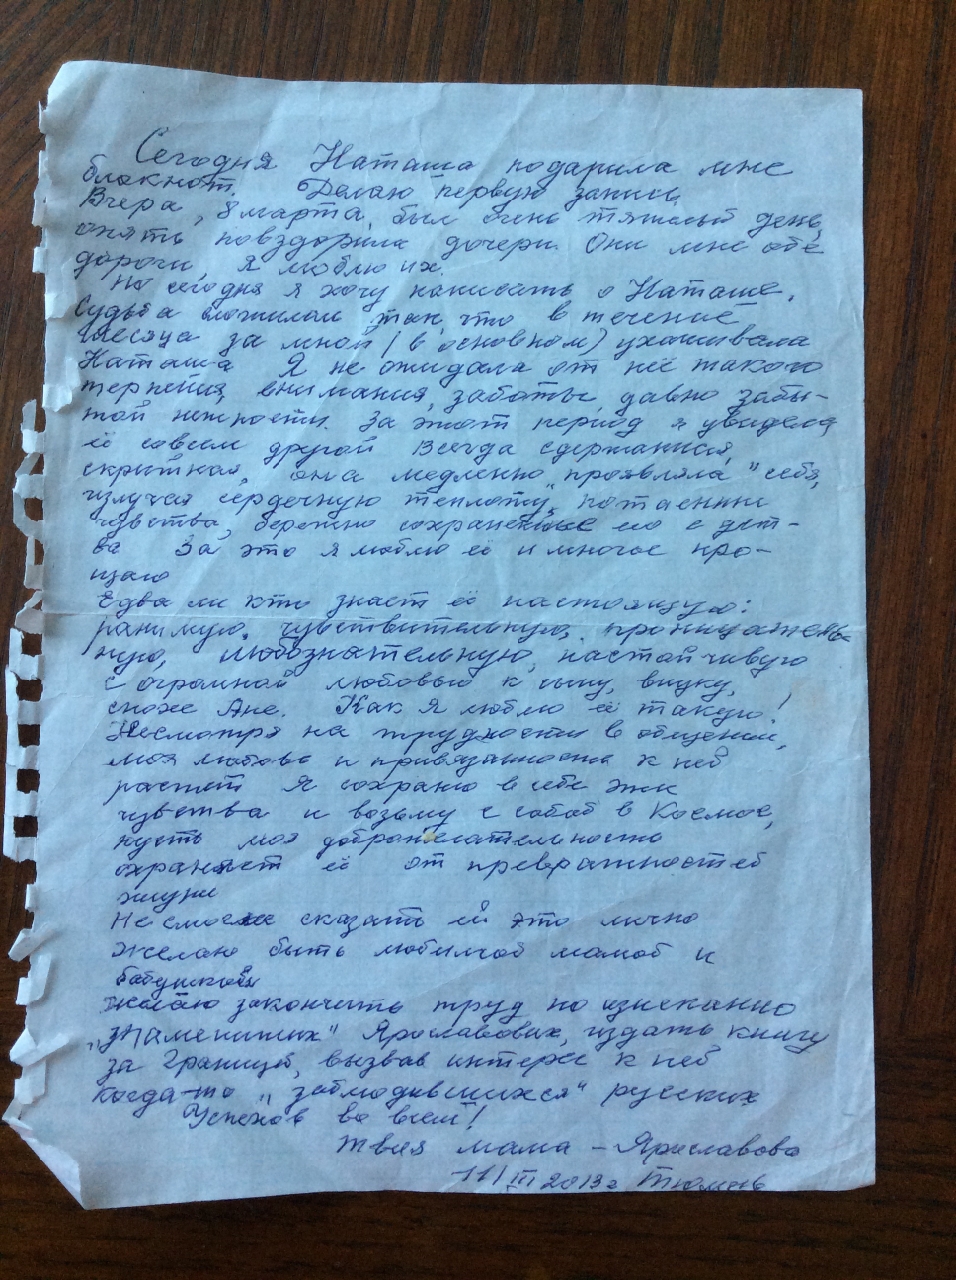 Сегодня Наташа подарила мне
блокнот. Делаю первую запись.
Вчера, 8 марта, был очень тяжелый день,
опять повздорили дочери. Они мне обе
дороги, я люблю их.
Но сегодня я хочу написать о Наташе.
Судьба сложилась так, что в течение
месяца за мной (в основном) ухаживала
Наташа Я не ожидала от неё такого
терпения, внимания, заботы, давно забы-
той нежности. За этот период я увидела
её совсем другой Всегда сдержанная,
скрытная, она медленно „проявляла" себя,
излучая сердечную теплоту, потаенные
чувства, бережно сохраненные ею с детс-
ва За это я люблю её и многое про-
щаю
Едва ли кто знает её настоящую:
ранимую, чувствительную, проницатель-
ную, любознательную, настойчивую
с огромной любовью к сыну, внуку,
снохе Ане. Как я люблю её такую!
Несмотря на трудности в общении,
моя любовь и привязанность к ней
растет Я сохраню в себе эти
чувства и возьму с собой в Космос,
пусть моя доброжелательность
охраняет её от превратностей
жизни
Не смогла сказать ей это лично
Желаю быть любимой мамой и
бабушкой
Желаю закончить труд по изысканию
„знаменитых" Ярославовых, издать книгу
за границей, вызвав интерес к ней
когда-то „заблудившихся" русских
Успехов во всем!
Твоя мама – Ярославова
11/III 2013г Тюмень